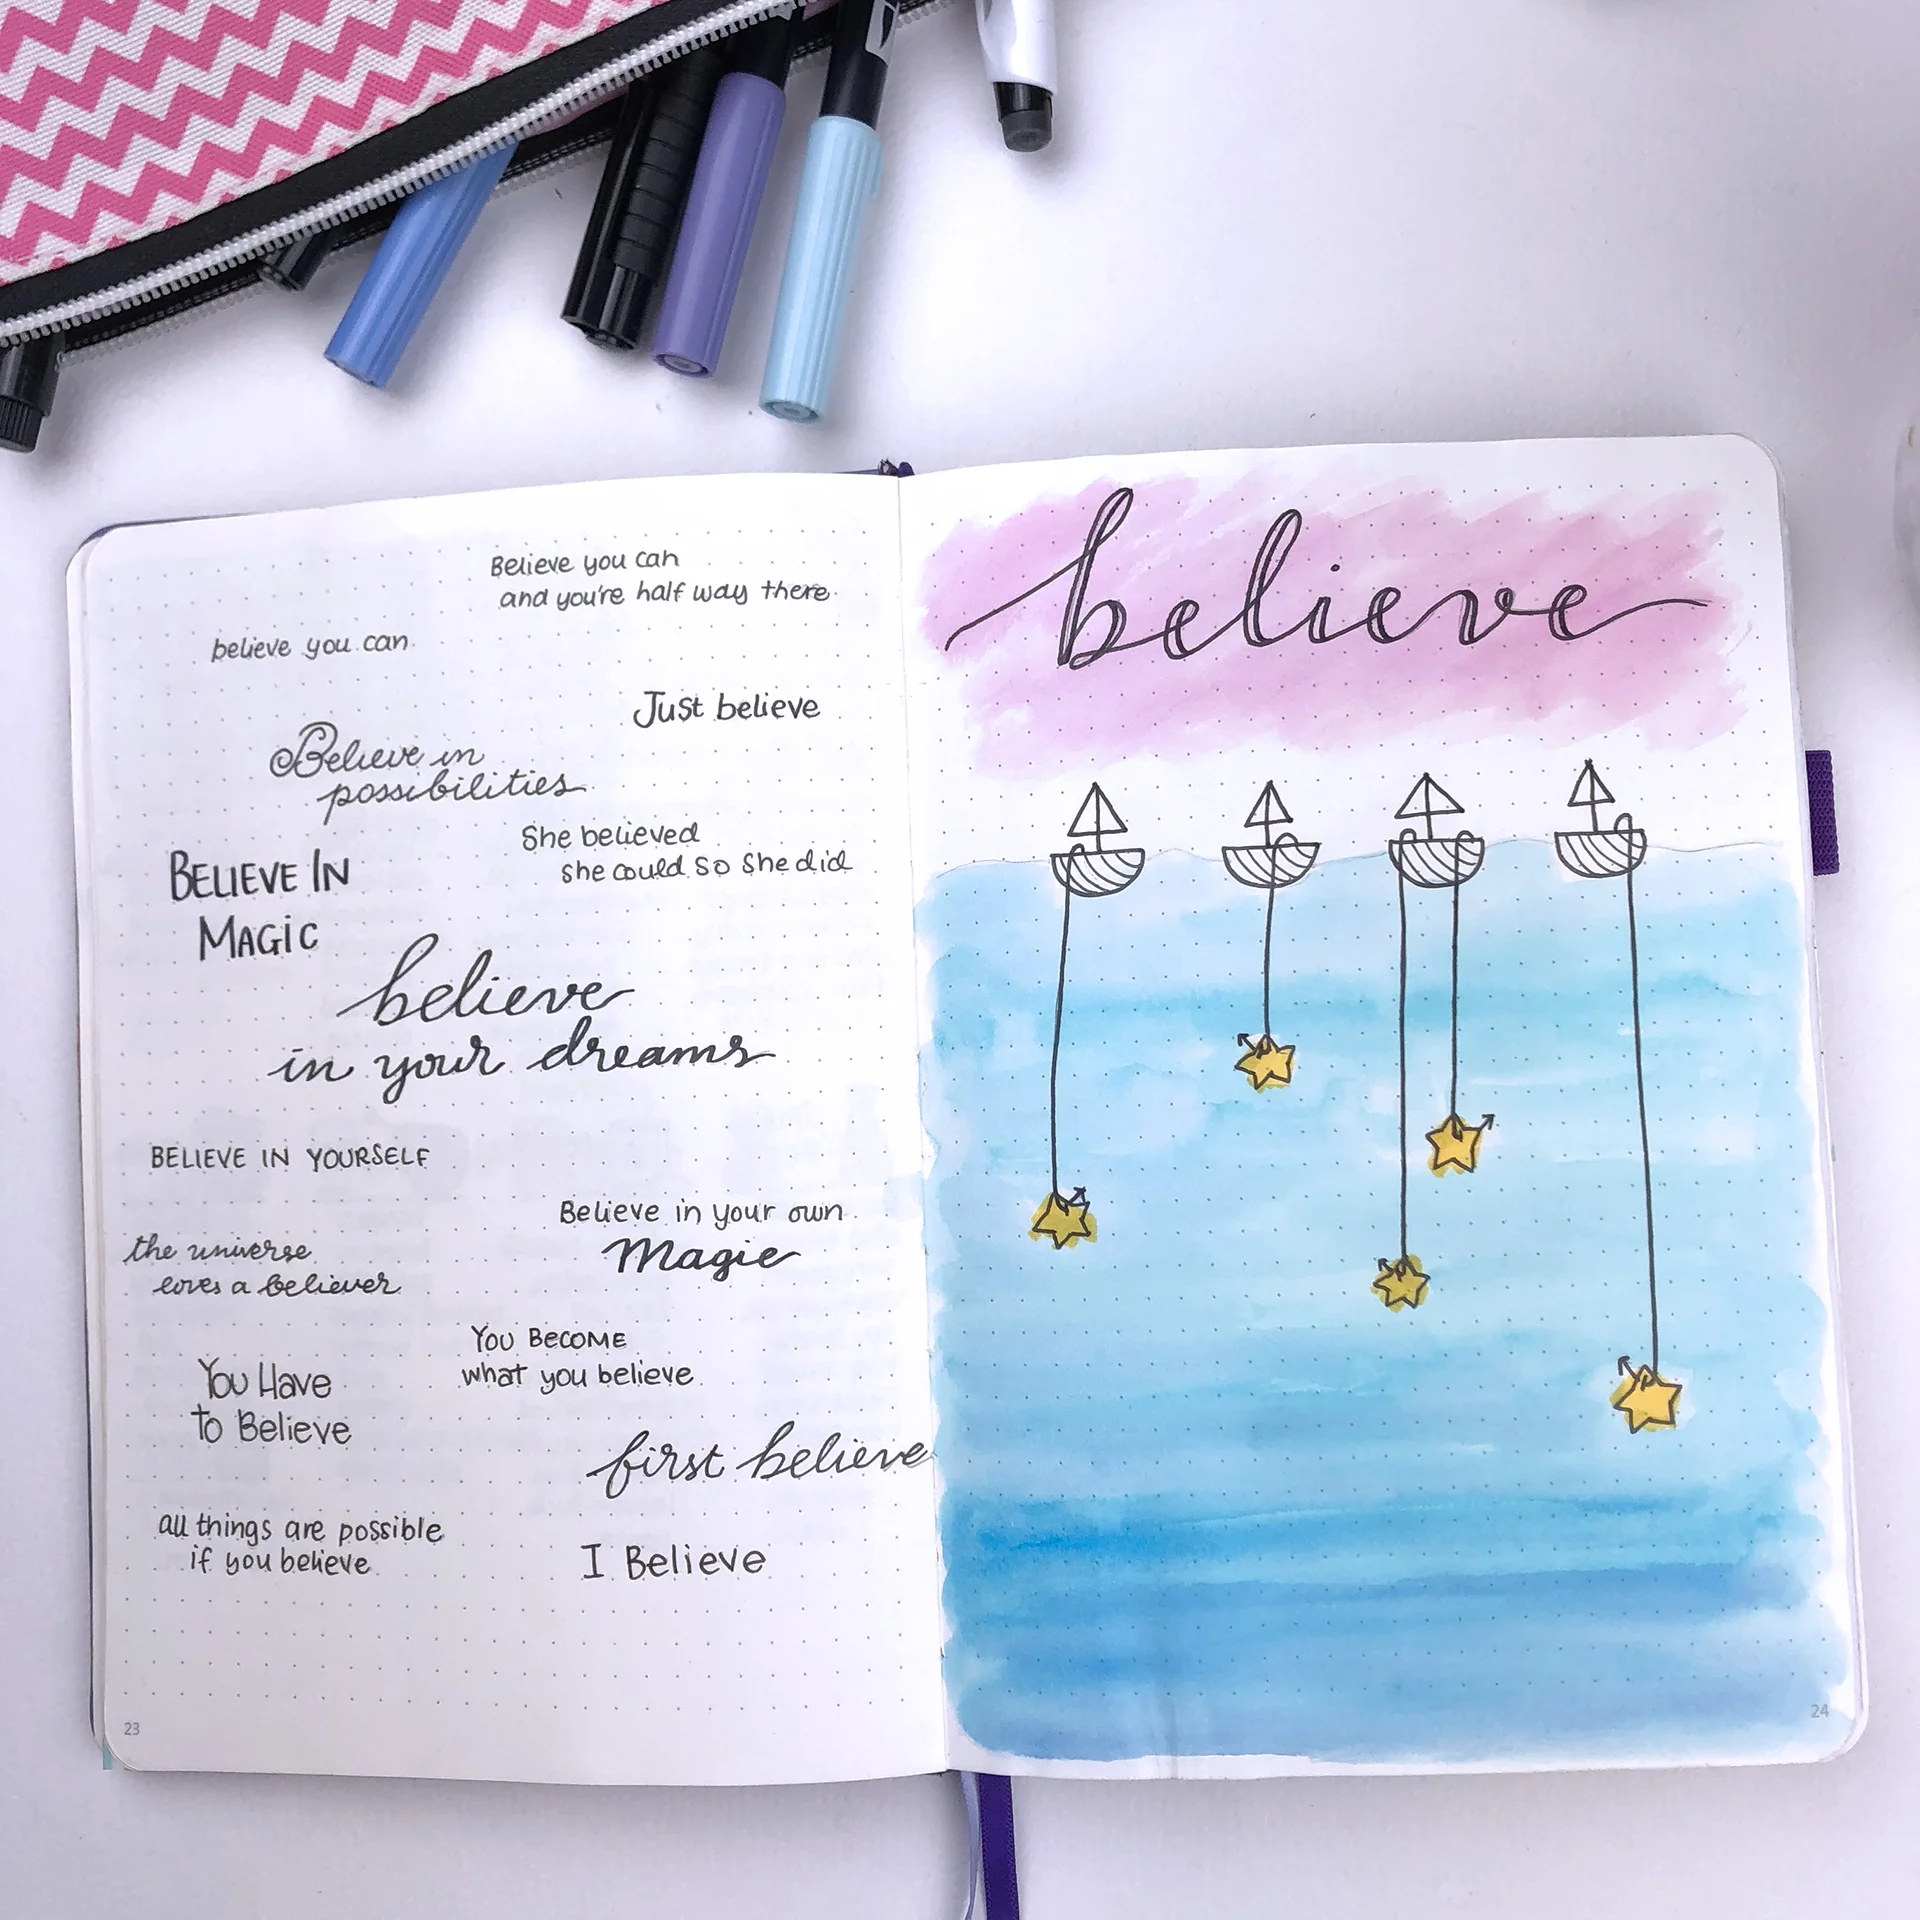 Believe you can
and you're half way there
believe you can
Just believe
Believe in
possibilities
She believed
she could so she did
BELIEVE IN
MAGIC
believe
in your dreams
BELIEVE IN YOURSELF
Believe in your own
Magic
the universe
loves a believer
You Become
what you believe
You Have
to Believe
first believe
all things are possible
if you believe
I Believe
23
believe
24